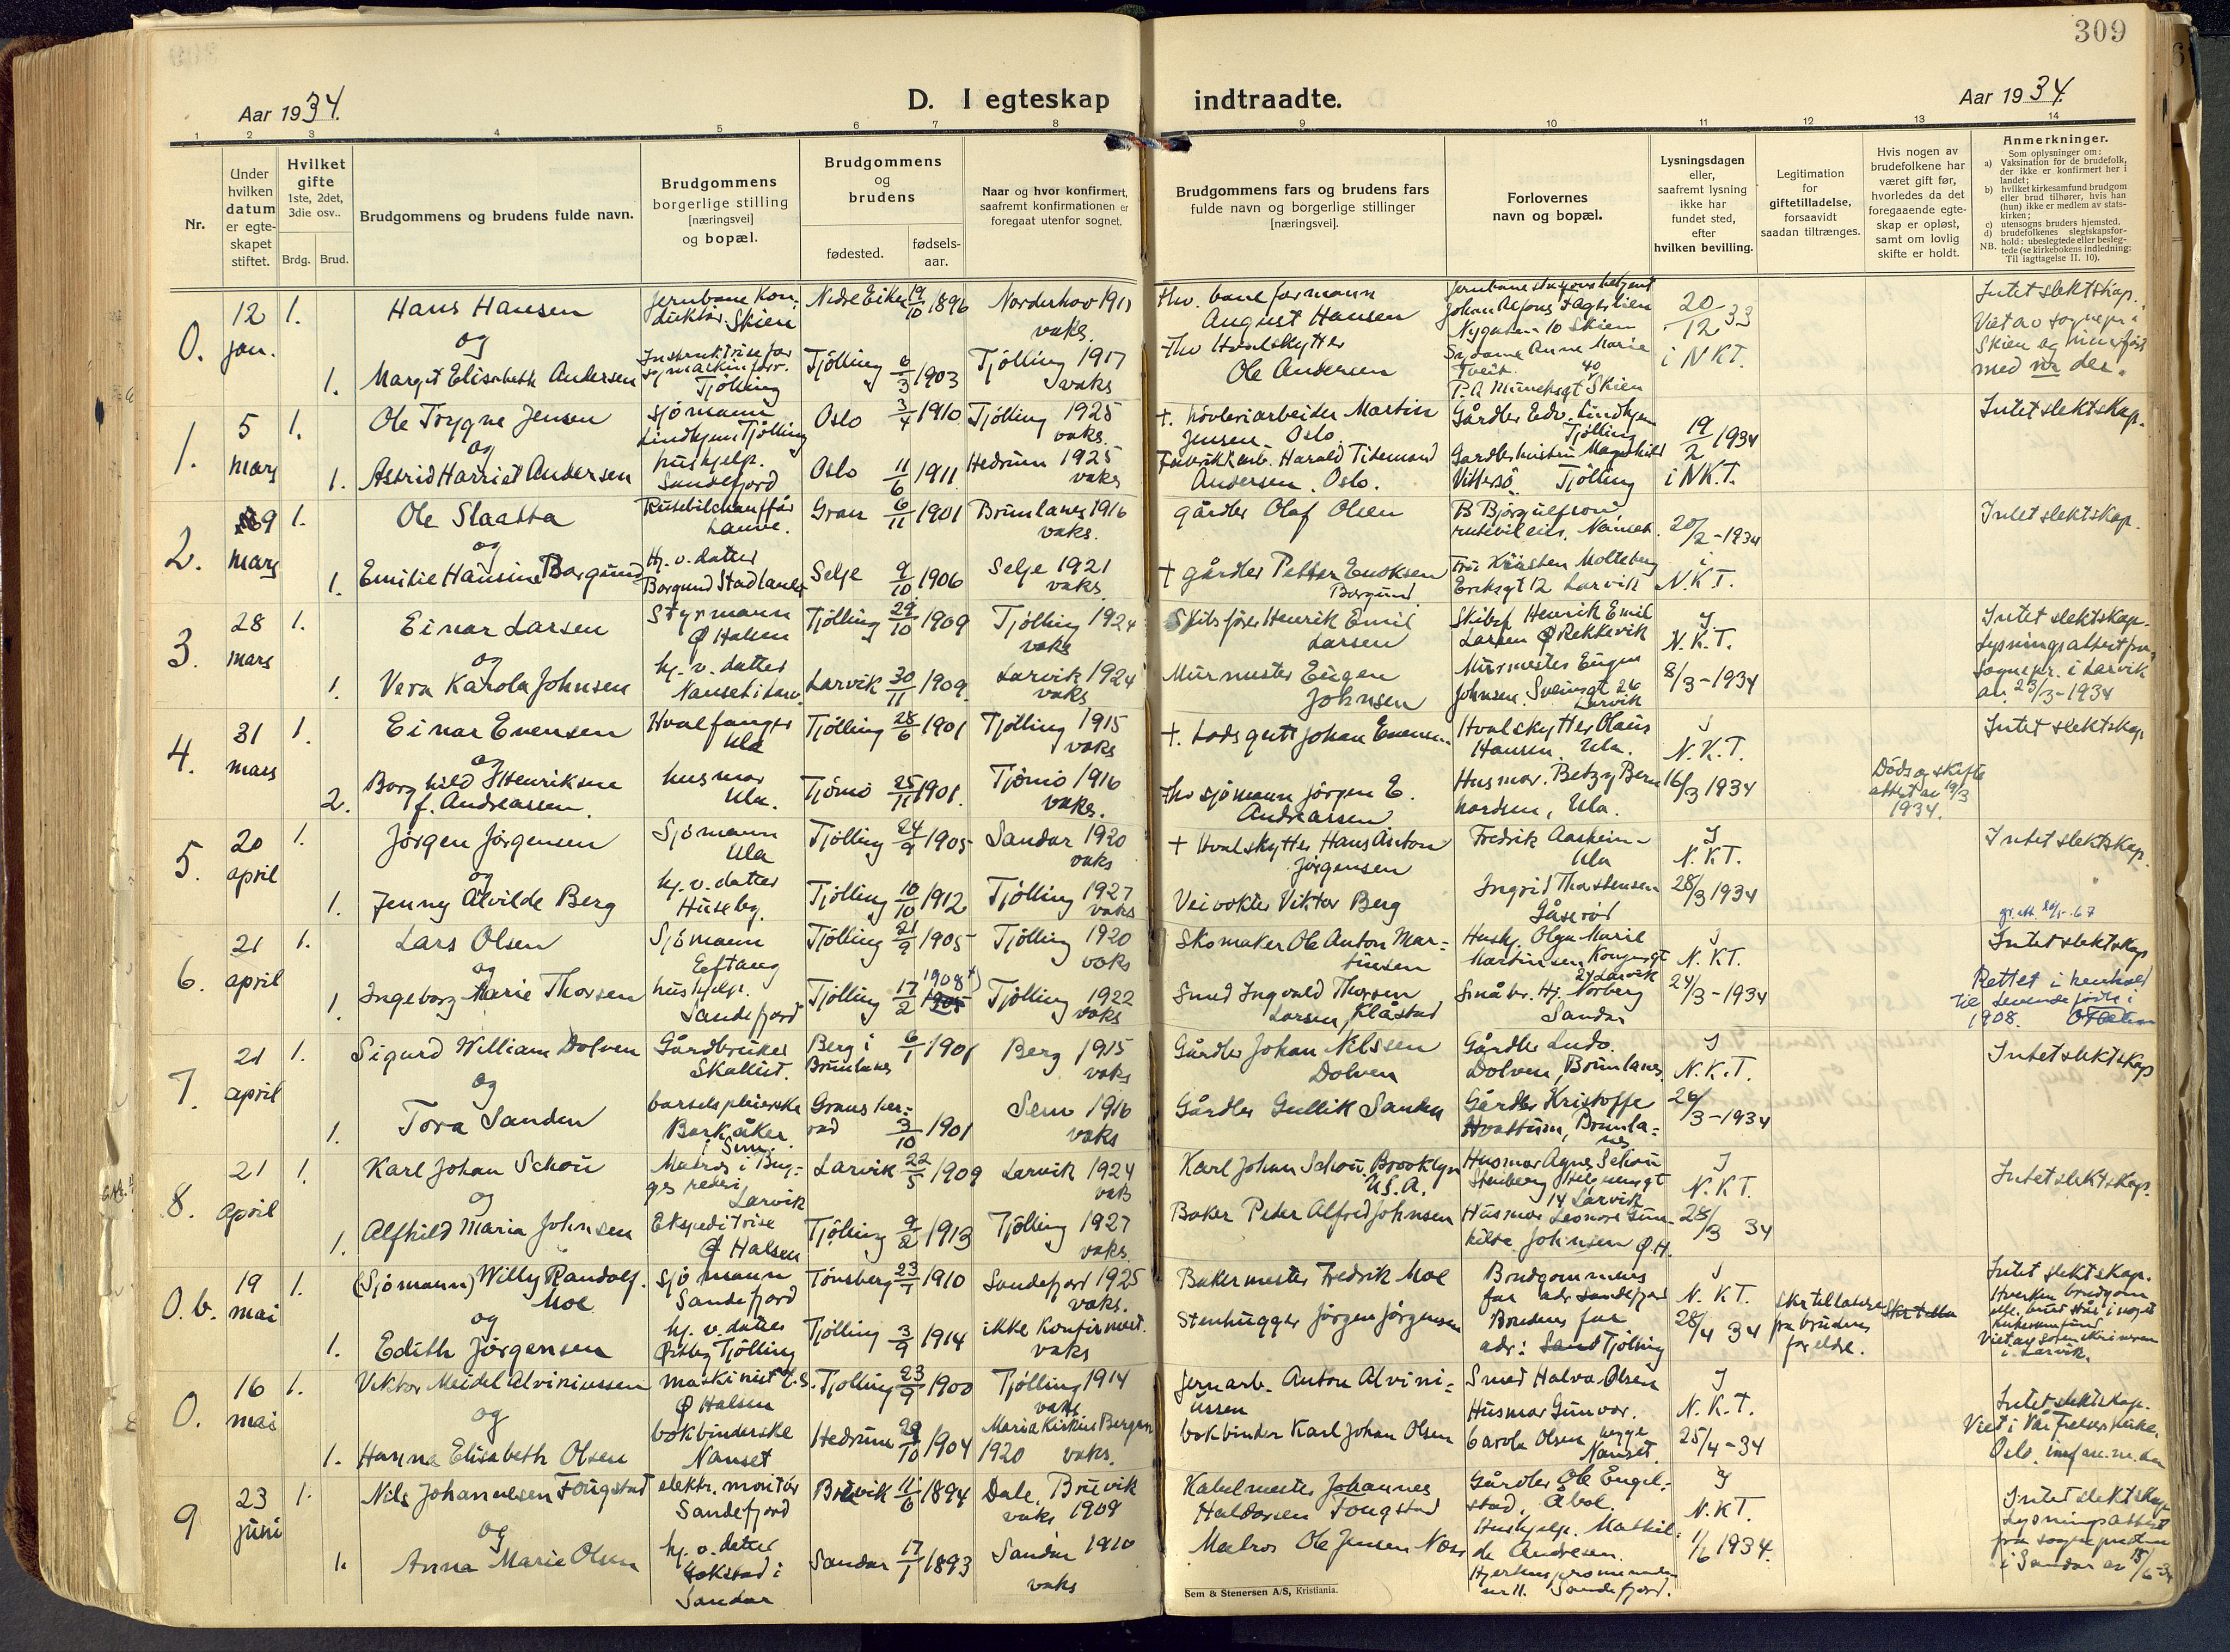 309
Aar 1934.
D. I egteskap indtraadte.
Aar 1934.
1 2 3 4 5 6 7 8 9 10 11 12 13 14
Nr.
Under
hvilken
datum
er egte-
skapet
stiftet.
Hvilket
gifte
1ste, 2det,
3die osv..
Brdg. Brud.
Brudgommens og brudens fulde navn.
Brudgommens
borgerlige stilling
[næringsvei]
og bopæl.
Brudgommens
og
brudens
fødested.
fødsels-
aar.
Naar og hvor konfirmert,
saafremt konfirmationen er
foregaat utenfor sognet.
Brudgommens fars og brudens fars
fulde navn og borgerlige stillinger
[næringsvei].
Forlovernes
navn og bopæl.
Lysningsdagen
eller,
saafremt lysning
ikke har
fundet sted,
efter
hvilken bevilling.
Legitimation
for
giftetilladelse,
forsaavidt
saadan tiltrænges.
Hvis nogen av
brudefolkene har
været gift før,
hvorledes da det
foregaaende egte-
skap er opløst,
samt om lovlig
skifte er holdt.
Anmerkninger.
Som oplysninger om:
a) Vaksination for de brudefolk,
der ikke er konfirmert her i
landet;
b) hvilket kirkesamfund brudgom
eller brud tilhører, hvis han
(hun) ikke er medlem av stats-
kirken;
c) utensogns bruders hjemsted.
d) brudefolkenes slegtskapsfor-
hold: ubeslegtede eller besleg-
tede (se kirkebokens indledning:
NB. Til iagttagelse II. 10).
0. 12 jan. 1. Hans Hansen
og
1. Margit Elisabeth Andersen
Jernbane kon-
duktør. Skien
Tjölling
Nedre Eiker 19/10 1896 Norderhov 1911
vaks.
Tjölling 6/3 1903 Tjölling 1917
vaks
fhv. baneformann
August Hansen
fhv Hvalskytter
Ole Andersen
20/12 33
i NKT.
Intet slektskap.
1. 5 mars 1. Ole Trygve Jensen
og
1. Astrid Harriet Andersen
sjømann
Lindhjem Tjölling
hushjelp.
Sandefjord
Oslo 3/4 1910 Tjölling 1925
vaks.
Oslo 11/6 1911 Hedrum 1925
vaks
+. høvleriarbeider Martin
Jensen - Oslo.
Harald Tidemand
Andersen. Oslo.
Gårdbr Edv. Lindhjem
Tjölling
Vittersö Tjölling
19/2 1934
i NKT.
Intet slektskap.
2. 9 mars 1. Ole Slaatta
og
1. Emilie Hansine Borgund
Rutebilchauffør
Hj. v. datter
Borgund Stadlandet
Gran 6/11 1901 Brunlanes 1916
vaks.
Selje 9/10 1906 Selje 1921
vaks
gårdbr Olof Olsen
+ gårdbr Petter Enoksen
Borgund
B Bjørgulfson
Eriksgt 12 Larvik
20/2-1934
i
N.K.T.
Intet slektskap.
3. 28 mars 1. Einar Larsen
og
1. Vera Karola Johnsen
Styrmann
Ø Halsen
hj. v. datter
Tjölling 29/10 1909 Tjölling 1924
vaks
Larvik 30/11 1909 Larvik 1924
vaks
Skibsfører Henrik Emil
Larsen
Murmester Eugen
Johnsen
Skibsf Henrik Emil
Larsen Ø Rekkevik
Murmester Eugen
Johnsen. Sveinsgt 26
Larvik
I
N.K.T.
8/3-1934
Intet slektskap.
Lysningsattest fra
sognepr. i Larvik
av 23/3-1934
4. 31 mars 1. Einar Evensen
og
2. Borghild Henriksen
f. Andreassen
Hvalfanger
Ula
husmor
Ula.
Tjölling 28/6 1901 Tjölling 1915
vaks
Tjömö 25/11 1901. Tjömö 1916
vaks.
+. Lodsgutt Johan Evensen
fhv sjömann Jörgen E.
Andreassen
Hvalskytter Olaus
Hansen, Ula.
Husmor. Betzy Bern
hardsen, Ula.
I
N.K.T.
16/3 1934
Döds og skifte
attest av 19/3
1934.
Intet slektskap
5. 20 april 1. Jörgen Jörgensen
og
1. Jenny Alvilde Berg
Sjömann
Ula
hj. v. datter
Huseby.
Tjölling 24/9 1905 Sandar 1920
vaks
Tjölling 10/10 1912 Tjölling 1927
vaks
+ Hvalskytter Hans Anton
Jörgensen
Veivokter Viktor Berg
Fredrik Aasheim-
Ula
Ingrid Thorstensen
Gåserød
I
N.K.T.
28/3 1934
Intet slektskap.
6. 21 april 1. Lars Olsen
og
1. Ingeborg Marie Thorsen
Sjömann
Eftang
hushjelp.
Sandefjord
Tjölling 21/9 1905 Tjölling 1920
vaks
Tjölling 17/2 1908 Tjölling 1922
vaks
Skomaker Ole Anton Mar-
tinsen
Smed Ingvald Thorsen
Larsen, Klåstad
Hushj. Olga Marie
Martinsen Kongensgt
24 Larvik
Småbr. Hj. Norberg
Sandar
I
N.K.T.
24/3-1934
Intet slektskap
Rettet i henhold
til levende födte i
1908.
7. 21 april 1. Sigurd William Dolven
og
1. Tora Sanden
Gårdbruker
barselspleierske
Barkåker
i Sem.
Berg i
Brunlanes 6/1 1901 Berg 1915
vaks
Grans her-
red 3/10 1901 Sem 1916
vaks
Gårdbr Johan Nilssen
Dolven
Gårdbr Gullik Sanden
Gårdbr Ludv.
Dolven, Brunlanes
Gårdbr Kristoffer
Brunla-
nes
I
N.K.T.
26/3-1934
Intet slektskap
8. 21 april 1. Karl Johan Schou
og
1. Alfhild Maria Johnsen
Matros i Bug-
ges rederi
Larvik
Ekspeditrise
Ø Halsen
Larvik 22/5 1909 Larvik 1924
vaks
Tjölling 9/2 1913 Tjölling 1927
vaks.
Karl Johan Schou. Brooklyn
U.S.A.
Baker Peder Alfred Johnsen
Husmor Agnes Schou
14 Larvik
Husmor Leonore Gun-
hilda Johnsen Ø.H.
I
N.K.T.
28/3 34
Intet slektskap.
0.b. 19 mai 1. (Sjömann) Willy Randolf.
Moe
og
1. Edith Jörgensen
Sjömann
Sandefjord
hj. v. datter
Østby Tjölling
Tönsberg 23/1 1910 Sandefjord 1925
vaks.
Tjölling 3/9 1914 ikke konfirmert.
vaks
Bakermester Fredrik Moe
Stenhugger Jörgen Jörgensen
Brudgommens
far adr Sandefjord
Brudens far
adr: Tjölling
I
N.KT.
28/4 34
Skr tillatelse
fra brudens
foreldre.
Intet slektskap.
Hverken brudgom
eller brud står i noget
kirkesamfund
Viet av sorenskriveren
i Larvik.
0. 16 mai 1. Viktor Meidel Alviniussen
og
1. Hanna Elisabeth Olsen
maskinist
Ø Halsen
bokbinderske
Nanset
Tjölling 23/9 1900 Tjölling 1914
vaks
Hedrum 29/10 1904 Mariakirken Bergen
1920 vaks.
Jernarb. Anton Alvini-
ussen
bokbinder Karl Johan Olsen
Smed Halvor Olsen
Husmor Gunvor.
Carola Olsen, begge
Nanset.
I
N.K.T.
25/4-34
Intet slektskap.
Viet i Vår Frelsers kirke,
Oslo.
9 23 juni 1. Nils Johannesen Fougstad
og
1. Anna Marie Olsen
elektr. montör
Sandefjord
hj. v. datter
Gokstad i
Sandar
11/6 1894 Dale, Bruvik
vaks 1909
Sandar 17/1 1893 Sandar 1910
vaks
Kabelmester Johannes
Haldorsen Fougstad
Matros Ole Jensen
Gårdbr Ole Engel-
stad,
Hushjelp. Mathil-
de Andresen.
Hjertnespromenaden
nr 11. Sandefjord.
I
N.KT.
1/6 1934.
Intet slektskap
Lysningsattest
fra sognepresten
i Sandar av 15/6-34
Sem & Stenersen A/S, Kristiania.